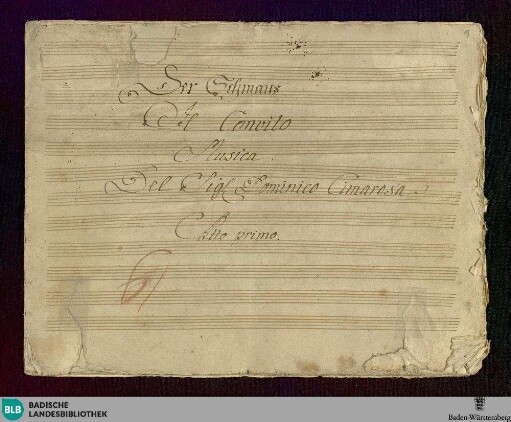 Der Schmaus
Il Convito
Musica
Del Sigl Dominico Cimarosa.
Atto primo.
BLB
BADISCHE
LANDESBIBLIOTHEK
Baden-Württemberg